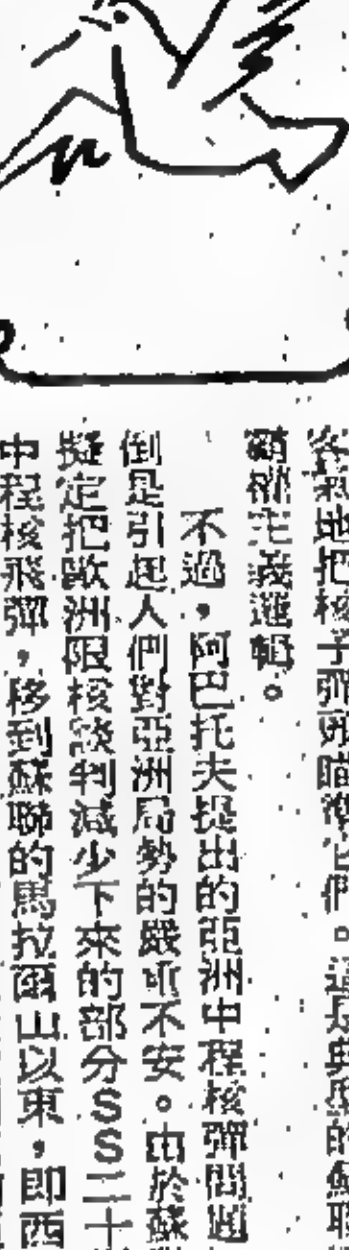 客氣地把核子彈頭瞄準它們。這是典型的蘇聯
霸權主義邏輯。
不過，阿巴托夫提出的亞洲中程核彈問題
倒是引起人們對亞洲局勢的嚴重不安。由於蘇
擬定把歐洲限核談判減少下來的部分SS二十
中程核飛彈，移到蘇聯的烏拉爾山以東，即西